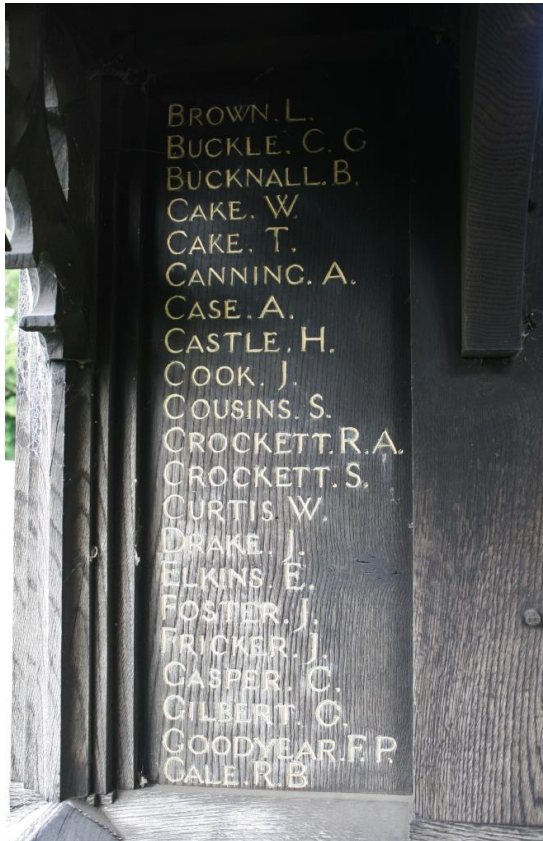 BROWN. L.
BUCKLE. C. G
BUCKNALL. B.
CAKE. W.
CAKE. T.
CANNING. A.
CASE. A.
CASTLE. H.
COOK. J.
COUSINS. S.
CROCKETT. R. A.
CROCKETT. S.
CURTIS. W.
DRAKE. J.
ELKINS. E.
FOSTER. J.
FRICKER. J.
GASPER. C.
GILBERT.
GOODYEAR. F. P.
GALE. R. B